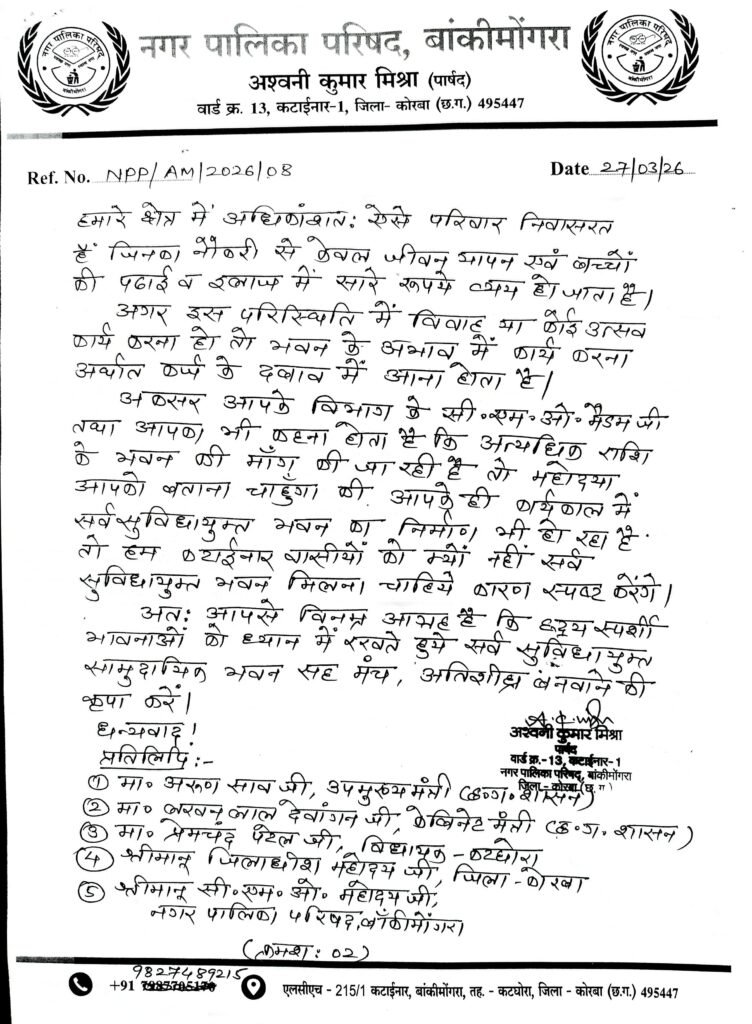 नगर पालिका परिषद, बांकीमोंगरा
अश्वनी कुमार मिश्रा (पार्षद)
वार्ड क्र. 13, कटाईनार-1, जिला- कोरबा (छ.ग.) 495447
Ref. No. NPP/AM/2026/08 Date 27/03/26
हमारे क्षेत्र में अधिकांशतः ऐसे परिवार निवासरत
है जिनका नौकरी से केवल जीवन यापन एवं बच्चों
की पढाई व इलाज में सारे रूपये व्यय हो जाता है।
अगर इस परिस्थिति में विवाह या कोई उत्सव
कार्य करना हो तो भवन के अभाव में कार्य करना
अर्थात कर्ज के दबाव में आना होता है।
अक्सर आपके विभाग के सी॰एम॰ओ॰ मैडम जी
तथा आपका भी कहना होता है कि अत्यधिक राशि
के भवन की माँग की जा रही है तो महोदया
आपको बताना चाहुँगा की आपके ही कार्यकाल में
सर्वसुविधायुक्त भवन का निर्माण भी हो रहा है
तो हम कटाईनार वासीयों को क्यों नहीं सर्व
सुविधायुक्त भवन मिलना चाहिये कारण स्पष्ट करेंगे।
अतः आपसे विनम्र आग्रह है कि ह्रदय स्पर्शी
भावनाओं को ध्यान में रखते हुये सर्व सुविधायुक्त
सामुदायिक भवन सह मंच, अतिशीघ्र बनवाने की
कृपा करें।
धन्यवाद!
अश्वनी कुमार मिश्रा
पार्षद
वार्ड क्र.-13, कटाईनार-1
नगर पालिका परिषद, बांकीमोंगरा
जिला- कोरबा (छ.ग.)
प्रतिलिपि:-
① मा॰ अरुण साव जी, उपमुख्यमंत्री (छ॰ग॰ शासन)
② मा॰ लखन लाल देवांगन जी, केबिनेट मंत्री (छ.ग. शासन)
③ मा॰ प्रेमचंद पटेल जी, विधायक - कटघोरा
④ श्रीमान् जिलाधीश महोदय जी, जिला - कोरबा
⑤ श्रीमान् सी॰एम॰ओ॰ महोदय जी,
नगर पालिका परिषद, बाँकीमोंगरा
(क्रमशः 02)
9827489215
+91 7987705170
एलसीएच - 215/1 कटाईनार, बांकीमोंगरा, तह. - कटघोरा, जिला - कोरबा (छ.ग.) 495447